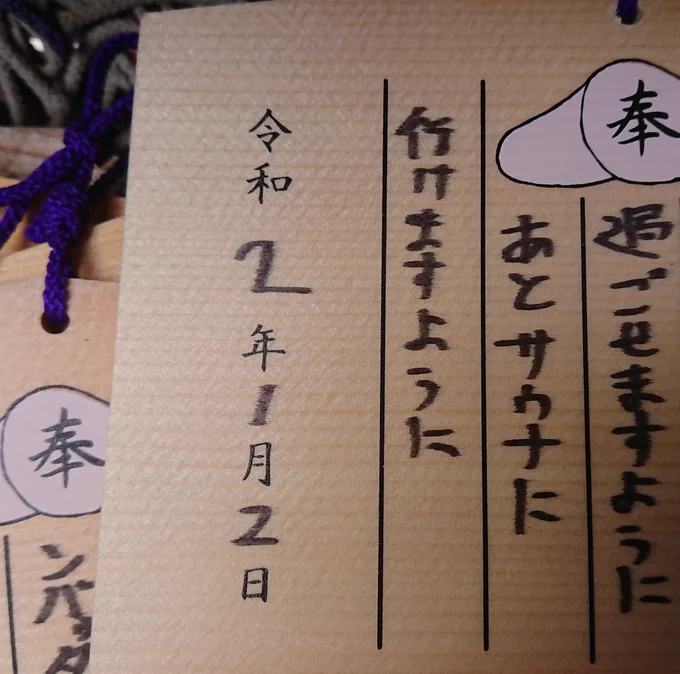 奉
過ごせますように
あとサウナに
行けますように
令和2年1月2日
奉